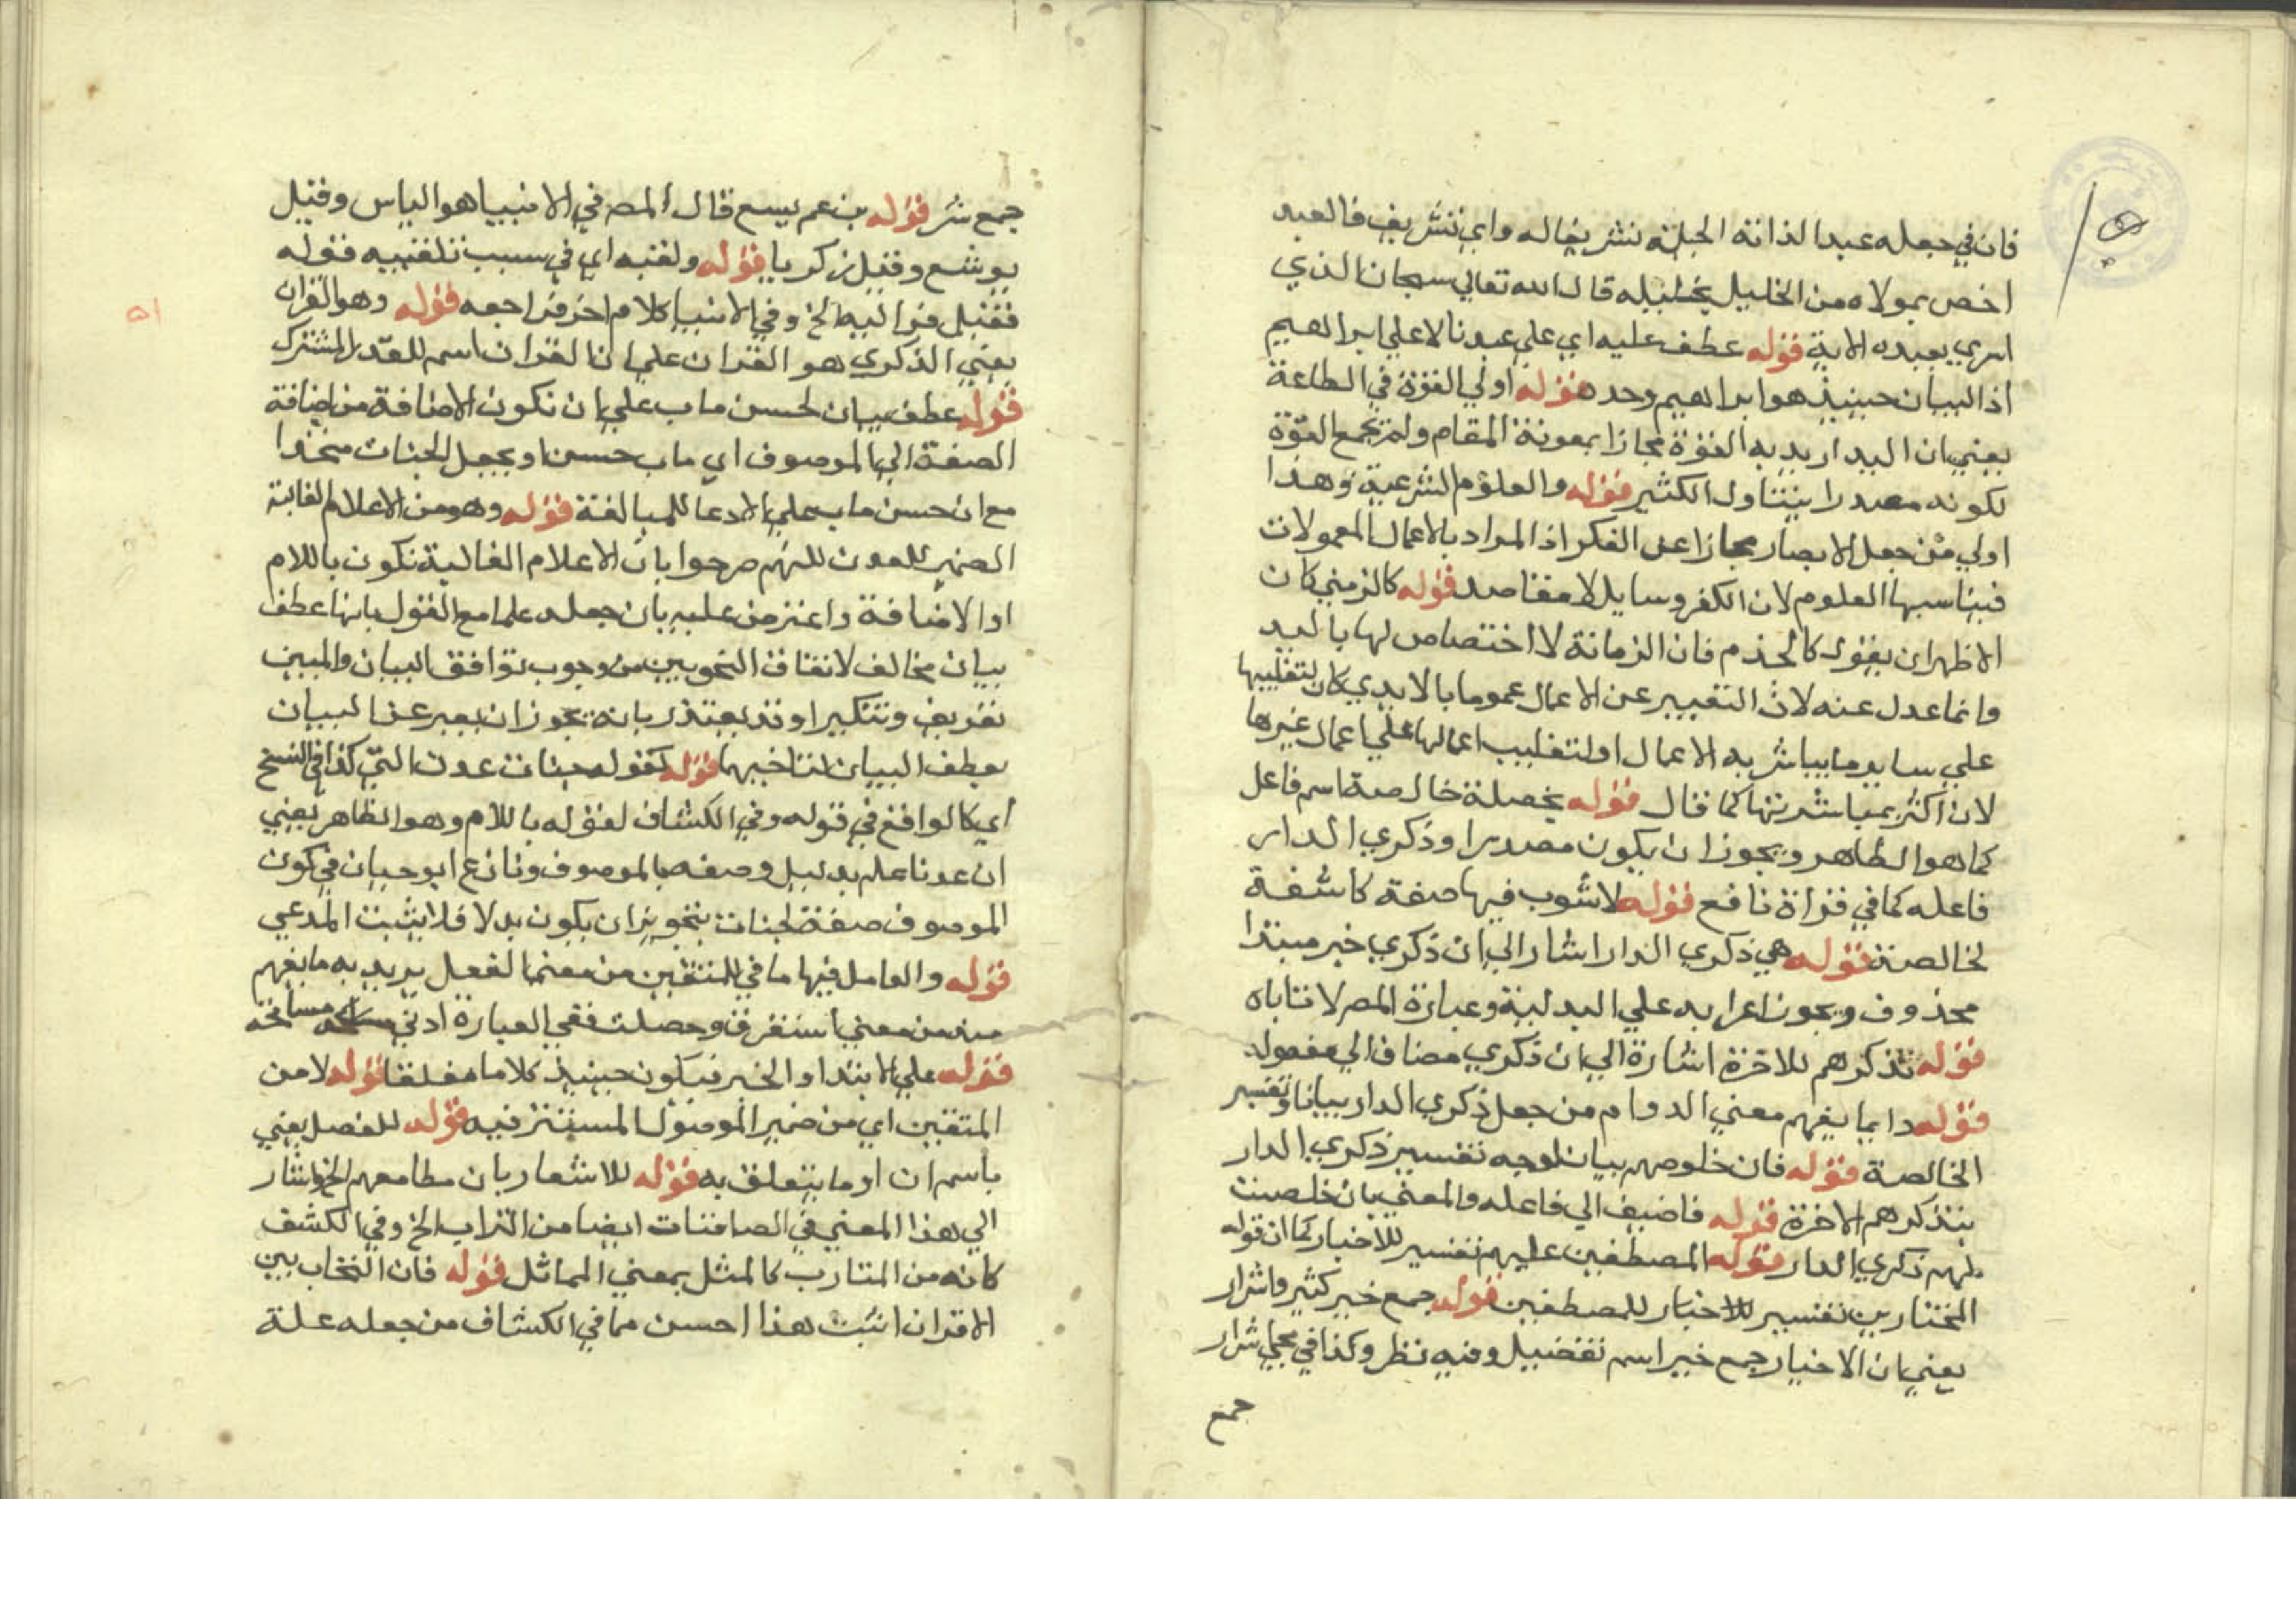 فان في جعله عبدا لذاته الجبلة تشريفا له واي تشريف فالعبد
اخص بمولاه من الخليل بخليله قال الله تعالي سبحان الذي
اسري بعبده الاية قوله عطف عليه اي علي عبدنا لا علي ابراهيم
اذ البيان حينيذ هو ابراهيم وحده قوله اولي القوة في الطاعة
يعني ان اليد اريد به القوة مجازا بمعونة المقام ولم يجمع القوة
لكونه مصدرا يتناول الكثير قوله والعلوم الشرعية وهذا
اولي من جعل الابصار مجازا عن الفكر اذ المراد بالاعمال المعمولات
فيناسبها العلوم لان الكفر وسايل لا مقاصد قوله كالزمني كان
الاظهر ان يقول كالجذم فان الزمانة لا اختصاص لها باليد
وانما عدل عنه لان التعبير عن الاعمال عموما بالايدي كان لتغليبها
علي ساير ما يباشر به الاعمال او لتغليب اعمالها علي اعمال غيرها
لان اكثر بمباشرتها كما قال قوله بخصلة خالصة اسم فاعل
كما هو الظاهر ويجوز ان يكون مصدرا وذكري الدار
فاعله كما في قراة نافع قوله لا شوب فيها صفة كاشفة
لخالصة قوله هي ذكري الدار اشار الي ان ذكري خبر مبتدا
محذوف ويجوز اعرابه علي البدلية وعبارة المصر لا تاباه
قوله تذكرهم للاخرة اشارة الي ان ذكري مضاف الي مفعوله
قوله دايما يفهم معني الدوام من جعل ذكري الدار بيانا وتفسير
الخالصة قوله فان خلوصهم بيان لوجه تفسير ذكري الدار
بتذكرهم الاخرة قوله فاضيف الي فاعله والمعني بان خلصت
لهم ذكري الدار قوله المصطفين عليهم تفسير للاخيار كما ان قوله
المختارين تفسير للاخيار للمصطفين قوله جمع خير كثير واشرار
يعني ان الاخيار جمع خير اسم تفضيل وفيه نظر وكذا في مجي اشرار
جمع
٥١
جمع شر قوله بن عم يسع قال المصر في الانبيا هو الياس وقيل
يوشع وقيل زكريا قوله ولقبه اي في سبب تلقيبه فقوله
فقيل فر اليه الخ وفي الانبيا كلام اخر فراجعه قوله وهو القران
يعني الذكري هو القران علي ان القران اسم للقدر المشترك
قوله عطف بيان لحسن ماب علي ان تكون الاضافة من اضافة
الصفة الي الموصوف اي ماب حسن او يجعل الجنات متحدا
مع ان حسن ماب علي الادعا للمبالغة قوله وهو من الاعلام الغالبة
الضمير للعدن للنهم صرحوا بان الاعلام الغالبة تكون باللام
او الاضافة واعترض عليه بان جعله علما مع القول بانها عطف
بيان مخالف لاتفاق النحويين من وجوب توافق البيان والمبين
تعريف وتنكيرا وقد يعتذر بانه يجوز ان يعبر عن البيان
بعطف البيان لتاخيهما قوله كقوله جنات عدن التي كذا في النسخ
اي كالواقع في قوله وفي الكشاف لقوله باللام وهو الظاهر يعني
ان عدنا علم بدليل وصفه بالموصوف ونازع ابو حيان في كون
الموصوف صفة لجنات بتجويز ان يكون بدلا فلا يثبت المدعي
قوله والعامل فيها ما في للمتقين من معني الفعل يريد به ما يفهم
منه من معني استقرت وحصلت ففي العبارة ادني مسامحة
قوله علي الابتدا والخبر فيكون حينيذ كلاما مغلقا قوله لا من
المتقين اي من ضمير الموصول المستتر فيه قوله للفصل يعني
باسم ان او ما يتعلق به قوله للاشعار بان مطامعهم الخ واشار
الي هذا المعني في الصافنات ايضا من التراب الخ وفي الكشف
كانه من المتارب كالمثل بمعني المماثل قوله فان التحاب بين
الاقران اثبت هذا احسن مما في الكشاف من جعله علة